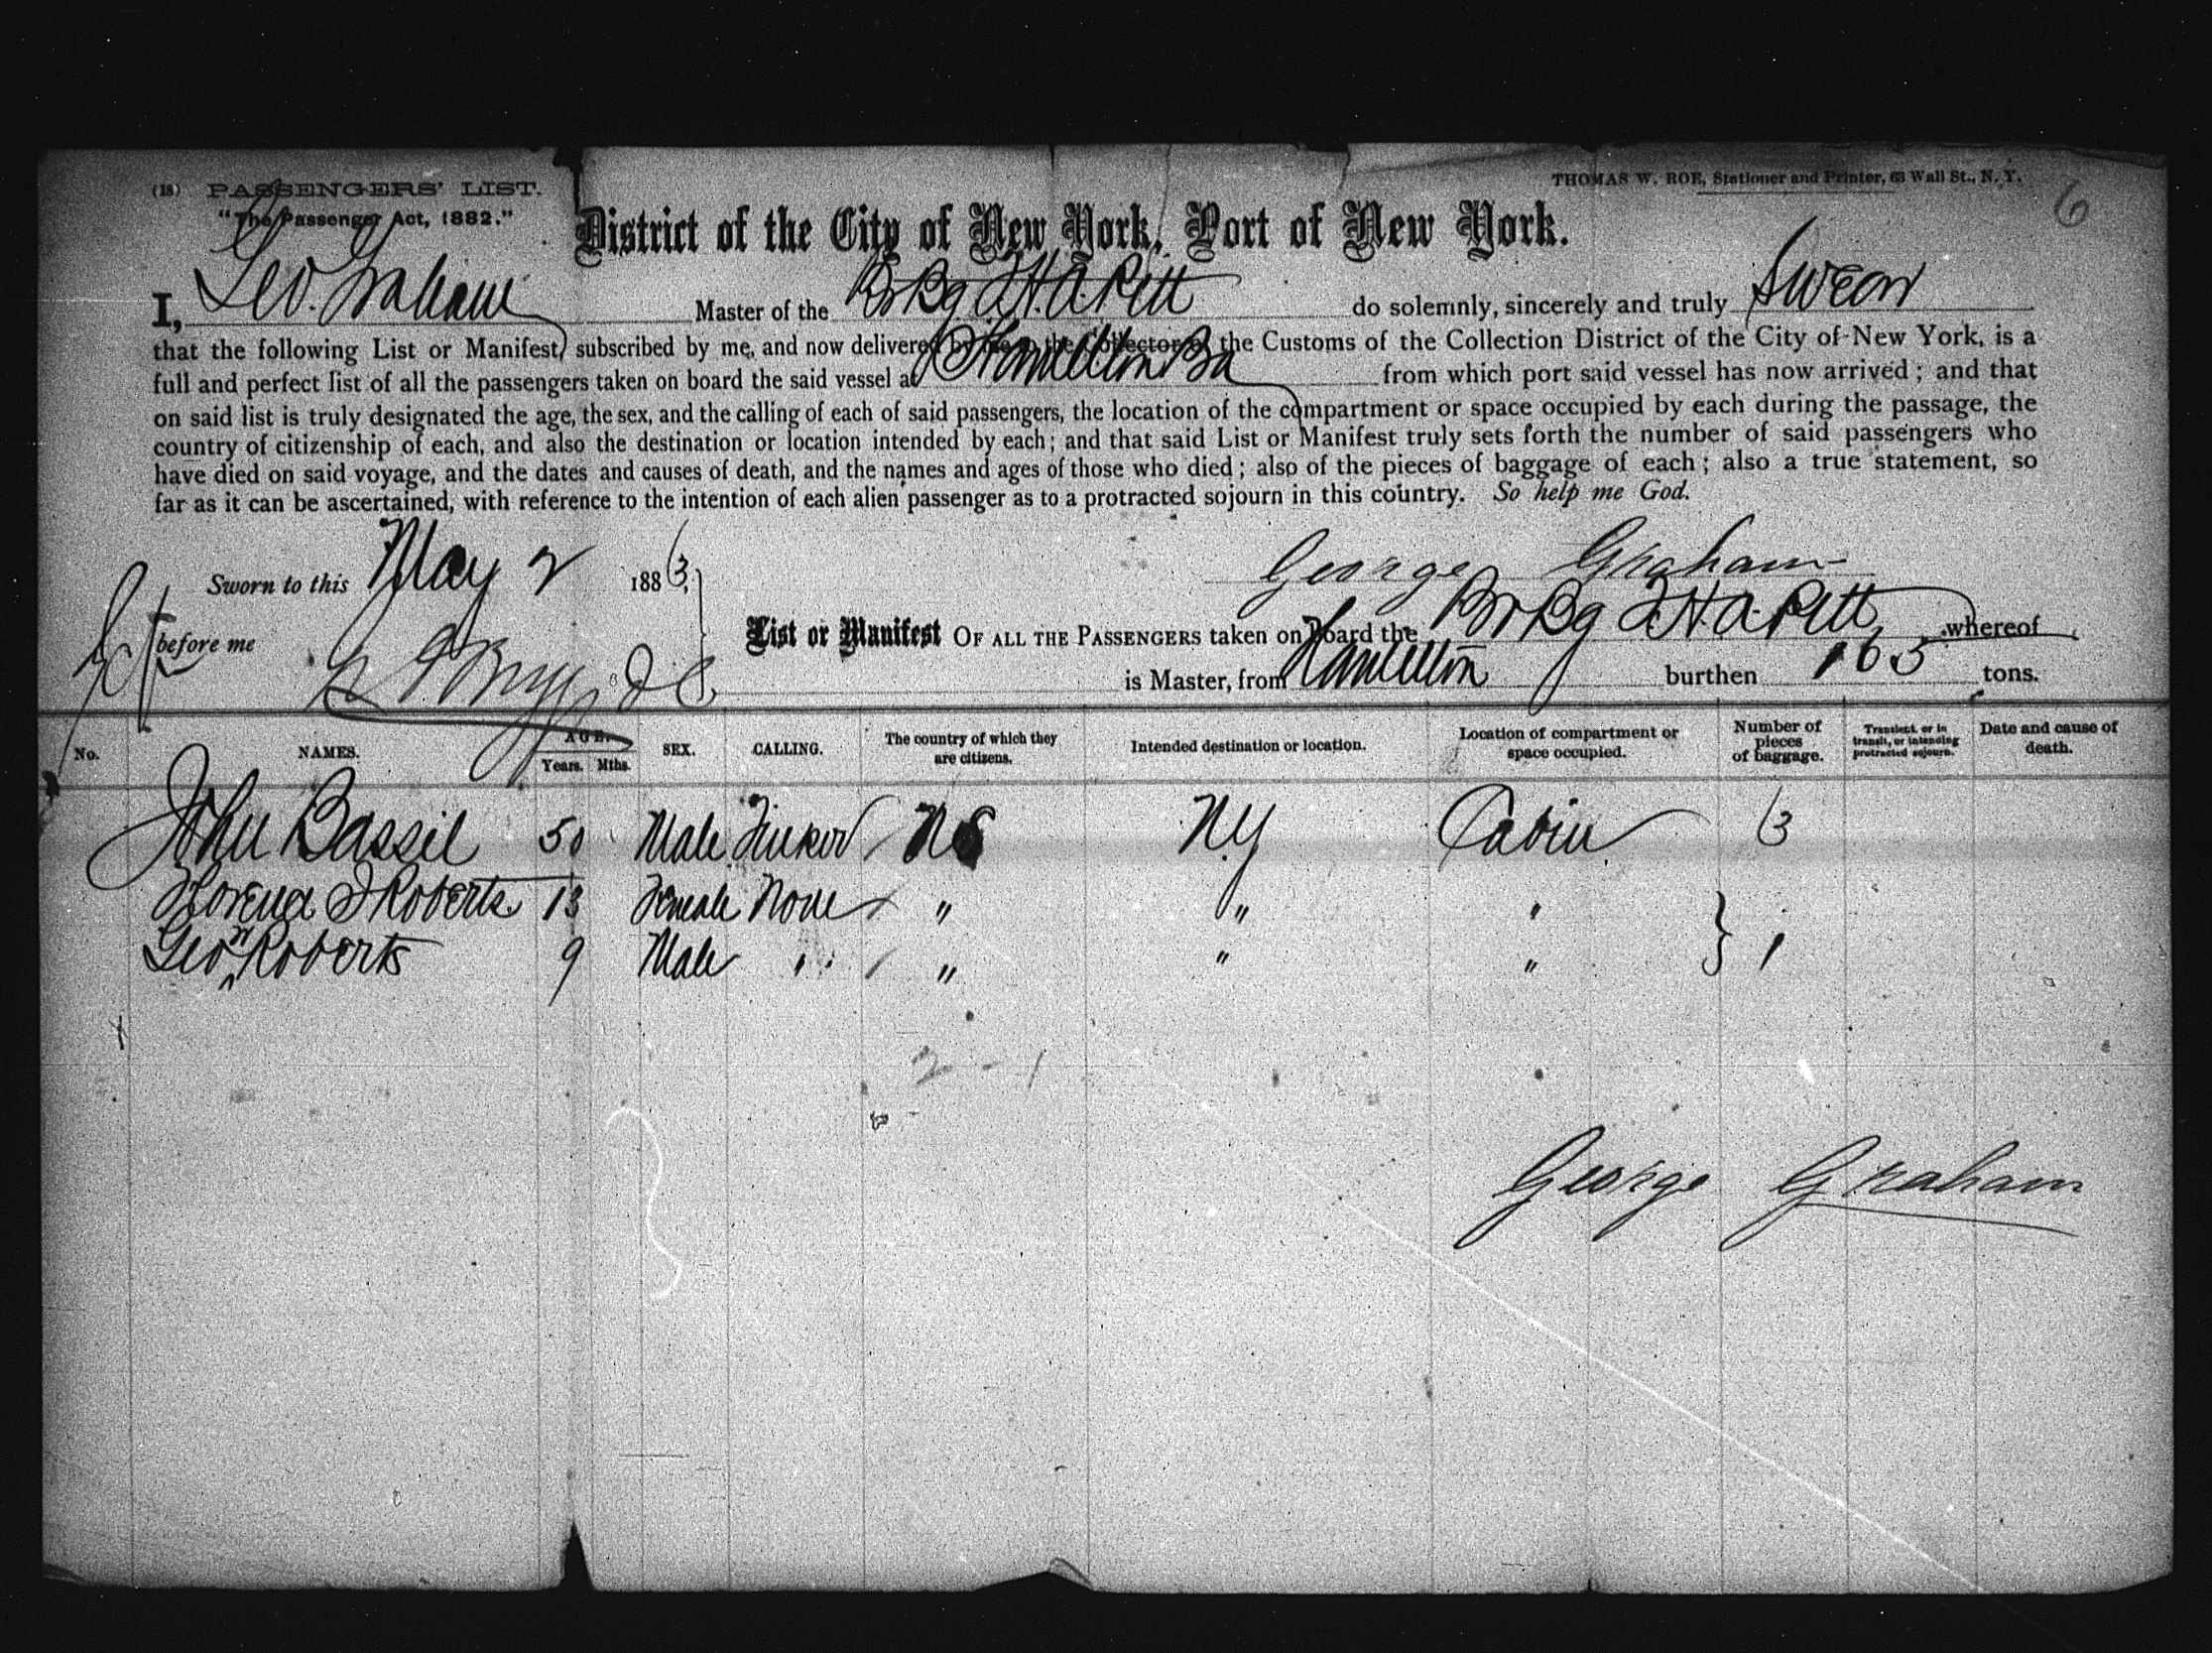 (18) PASSENGERS' LIST.
THOMAS W. ROE, Stationer and Printer, 63 Wall St., N. Y.
6
"The Passenger Act, 1882."
District of the City of New York, Port of New York.
I, Geo. Graham Master of the Br Bg T.H.A. Pitt do solemnly, sincerely and truly Swear
that the following List or Manifest, subscribed by me, and now delivered by me to the Collector of the Customs of the Collection District of the City of New York, is a
full and perfect list of all the passengers taken on board the said vessel at Hamilton Ba from which port said vessel has now arrived; and that
on said list is truly designated the age, the sex, and the calling of each of said passengers, the location of the compartment or space occupied by each during the passage, the
country of citizenship of each, and also the destination or location intended by each; and that said List or Manifest truly sets forth the number of said passengers who
have died on said voyage, and the dates and causes of death, and the names and ages of those who died; also of the pieces of baggage of each; also a true statement, so
far as it can be ascertained, with reference to the intention of each alien passenger as to a protracted sojourn in this country. So help me God.
Sworn to this May 2 1883,
George Graham
before me
List or Manifest OF ALL THE PASSENGERS taken on board the Br Bg T.H.A. Pitt whereof
is Master, from Hamilton burthen 165 tons.
No. NAMES. AGE. Years. Mths. SEX. CALLING. The country of which they are citizens. Intended destination or location. Location of compartment or space occupied. Number of pieces of baggage. Transient, or in transit, or intending protracted sojourn. Date and cause of death.
John Bassil 50 Male N.Y Cabin 3
Roberts 13 Female None " " "
Geo Roberts 9 Male " " " " 1
2 - 1
George Graham